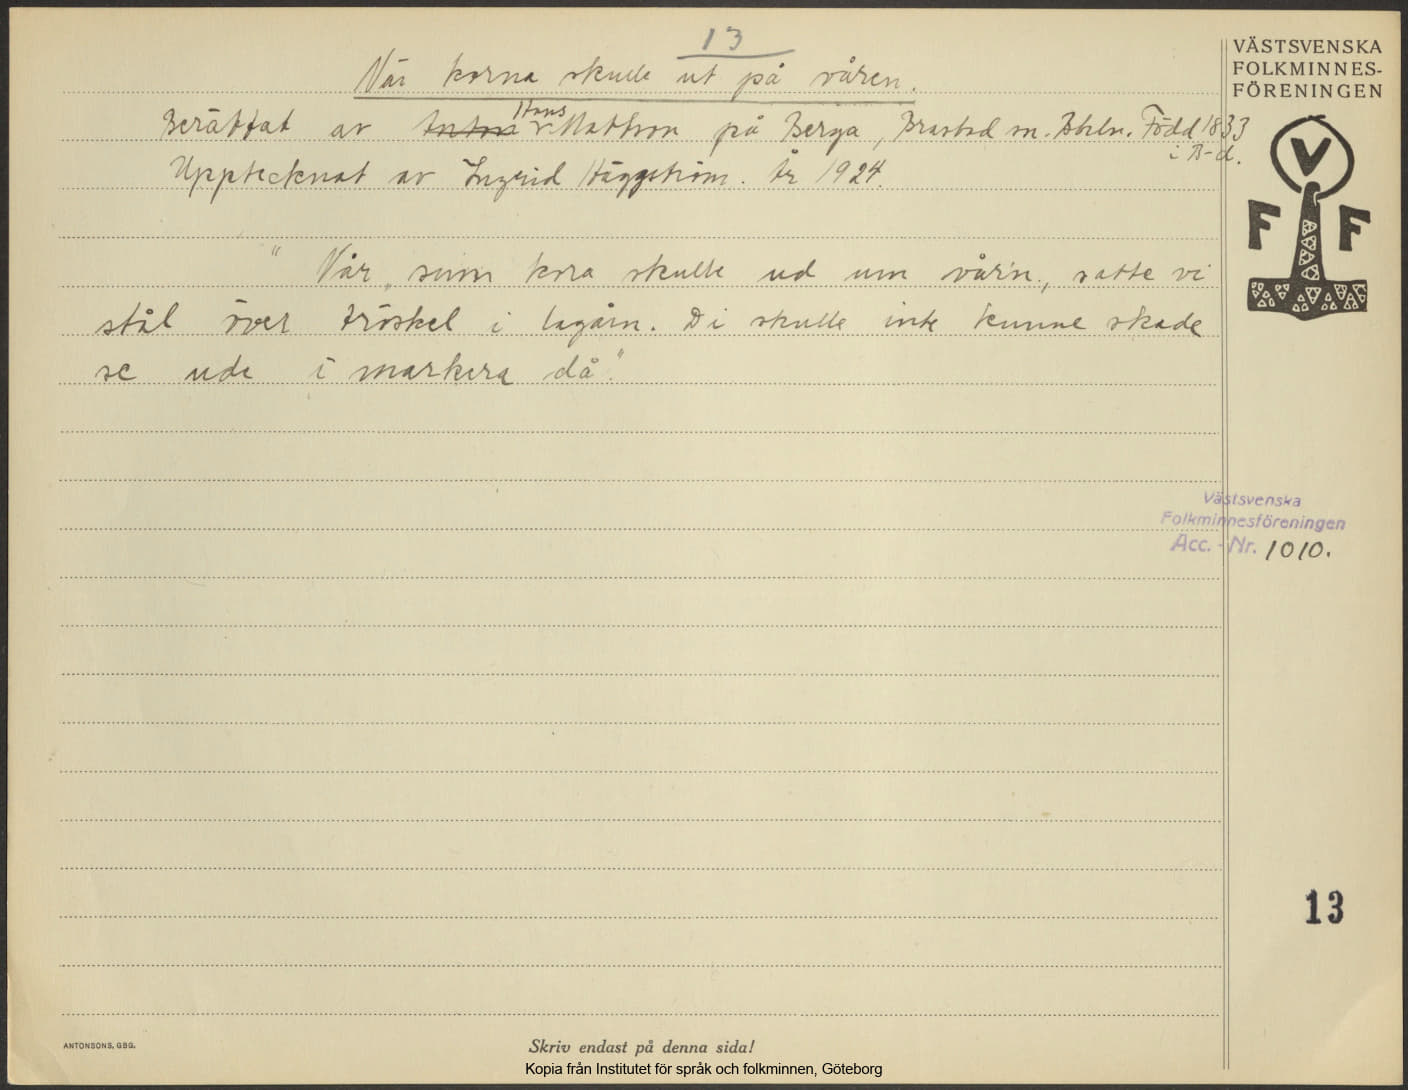 13
När korna skulle ut på våren.
Berättat av Anton Hans Mattson på Berga, Brastad sn. Bhln. Född 1833
i B-d.
Upptecknat av Ingrid Häggström. År 1924.
"När som kora skulle ud um vårn, satte vi
stål över tröskel i lagårn. Di skulle inte kunne skade
se ude i markera då."
VÄSTSVENSKA
FOLKMINNES-
FÖRENINGEN
V
F F
Västsvenska
Folkminnesföreningen
Acc. - Nr. 1010.
13
ANTONSONS, GBG.
Skriv endast på denna sida!
Kopia från Institutet för språk och folkminnen, Göteborg